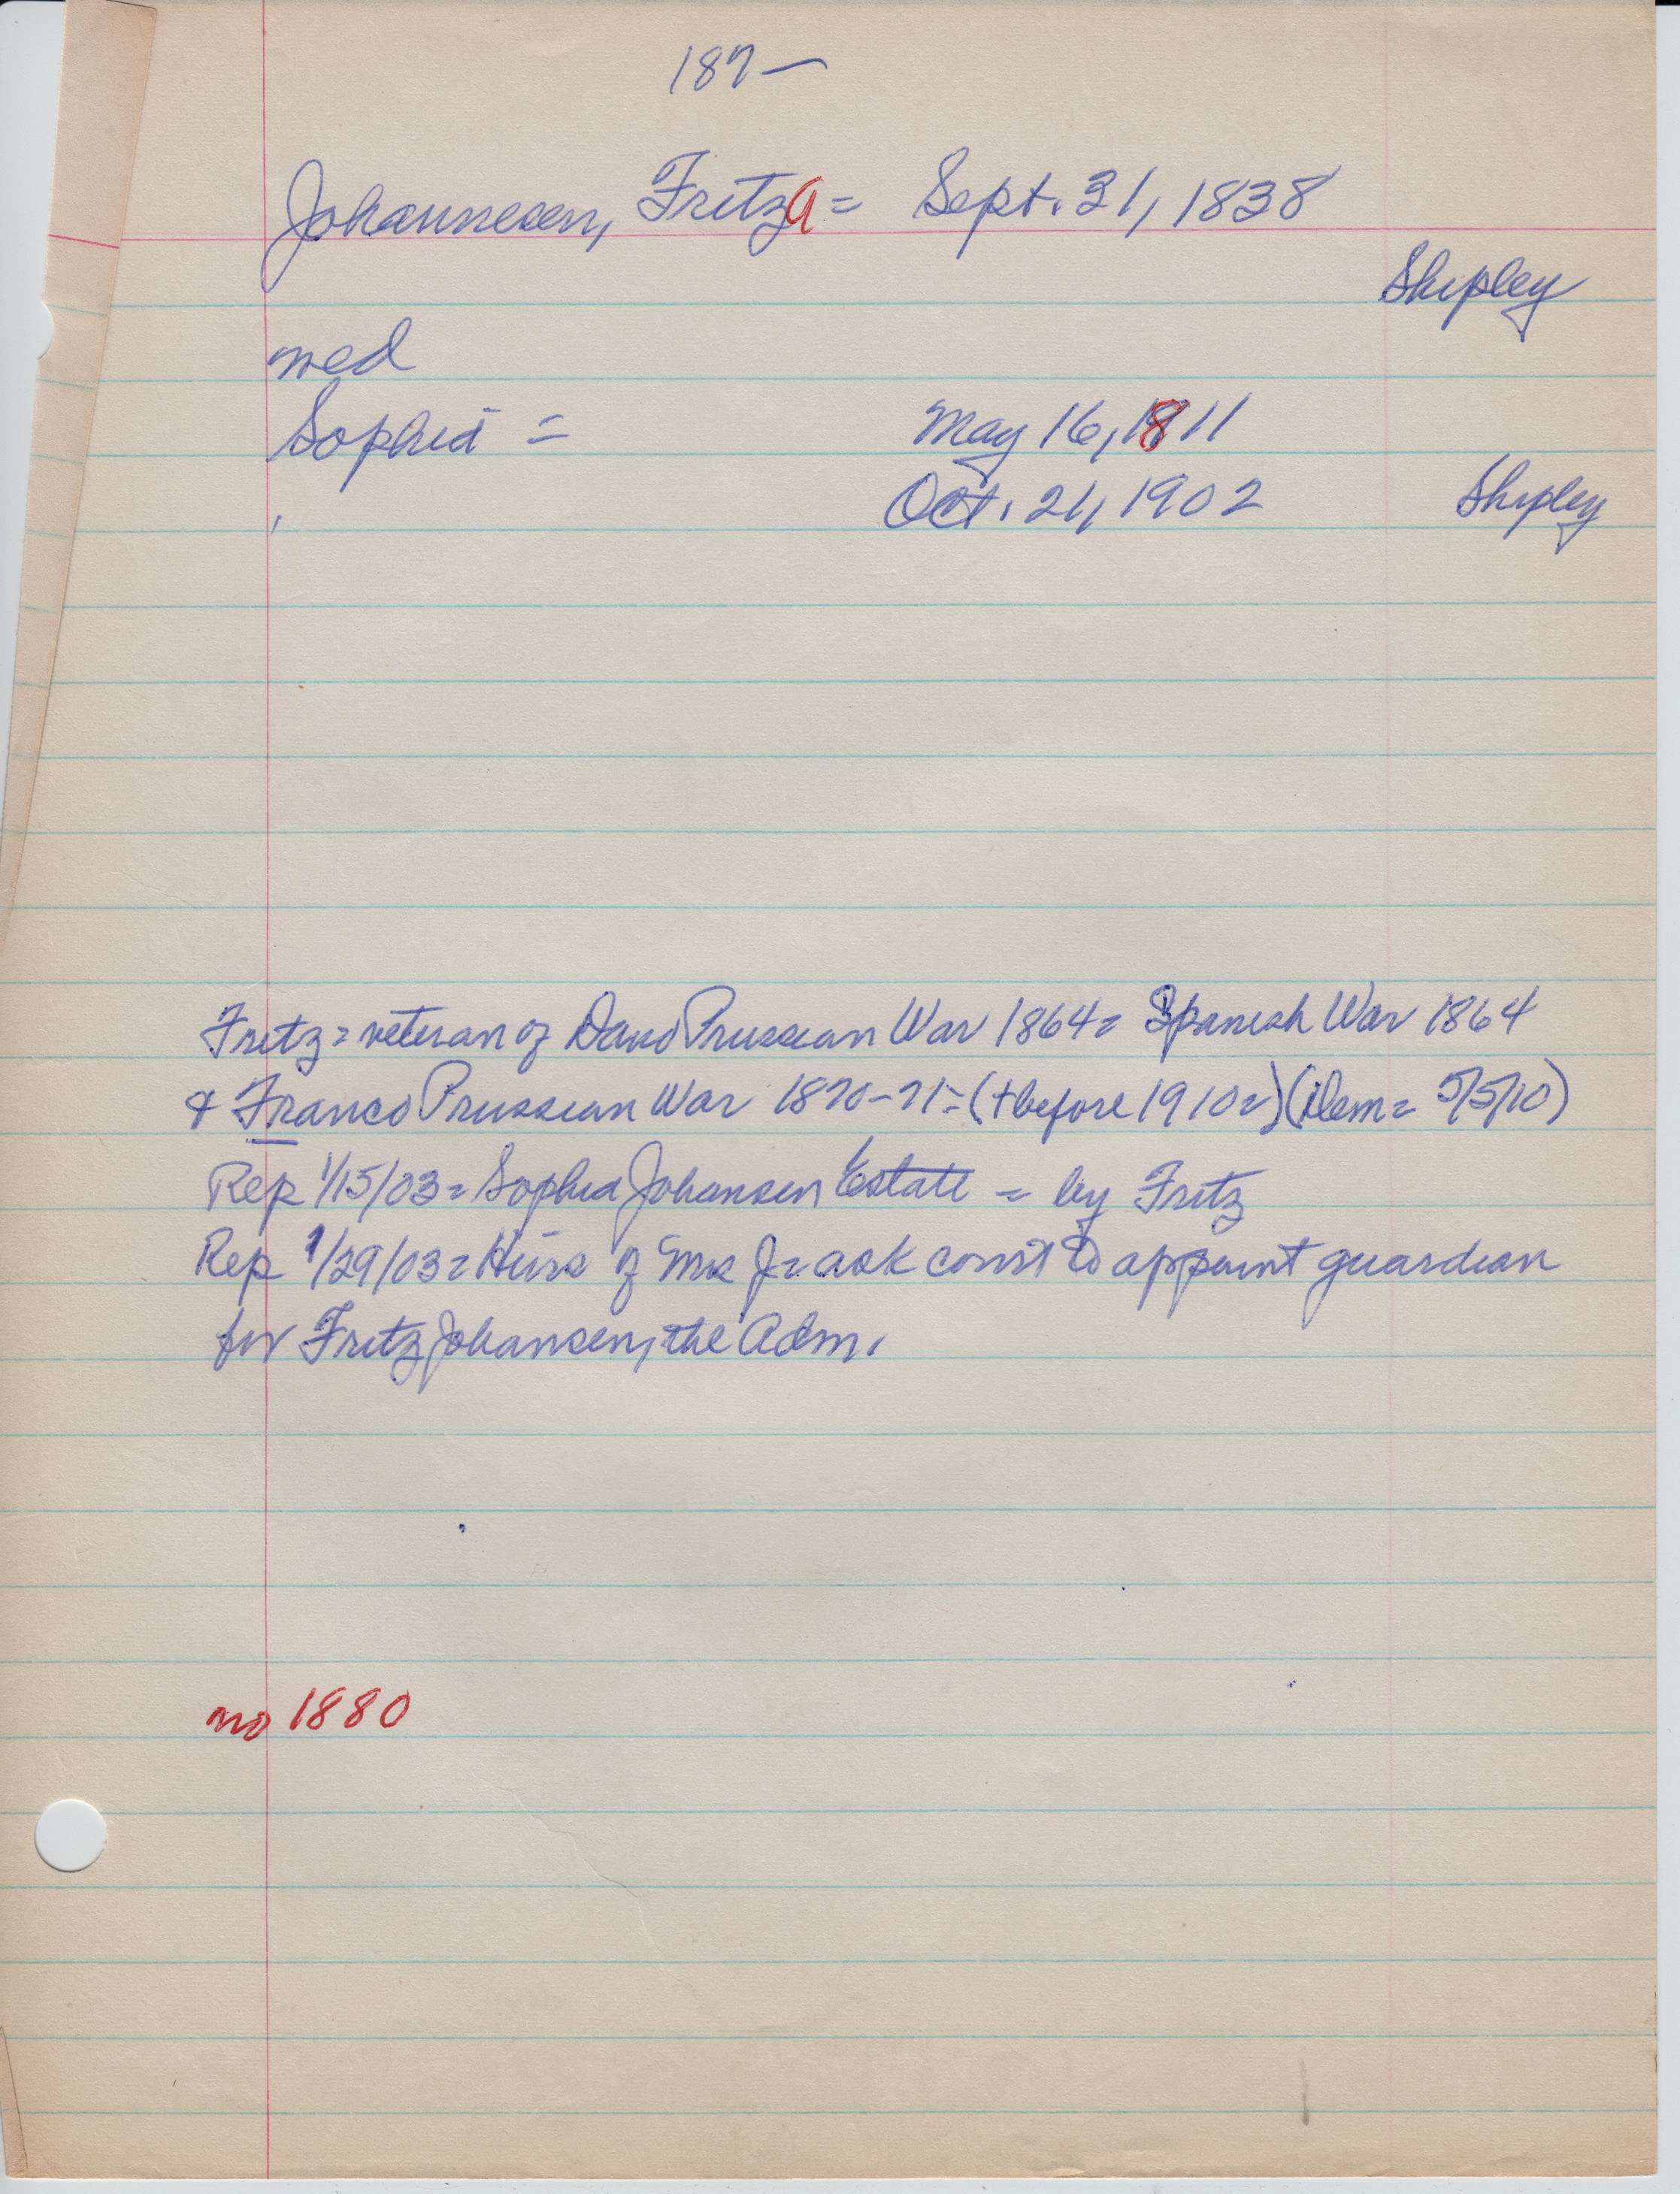 187—
Johannesen, Fritz a = Sept. 31, 1838
Shipley
wed
Sophia = May 16, 1811
Oct. 21, 1902 Shipley
Fritz = veteran of Dano Prussian War 1864 = Spanish War 1864
& Franco Prussian War 1870-71 = (+ before 1910 =) (Dem = 5/5/10)
Rep 1/15/03 = Sophia Johansen Estate = by Fritz
Rep 1/29/03 = Heirs of Mrs J = ask court to appoint guardian
for Fritz Johansen, the Adm.
no 1880